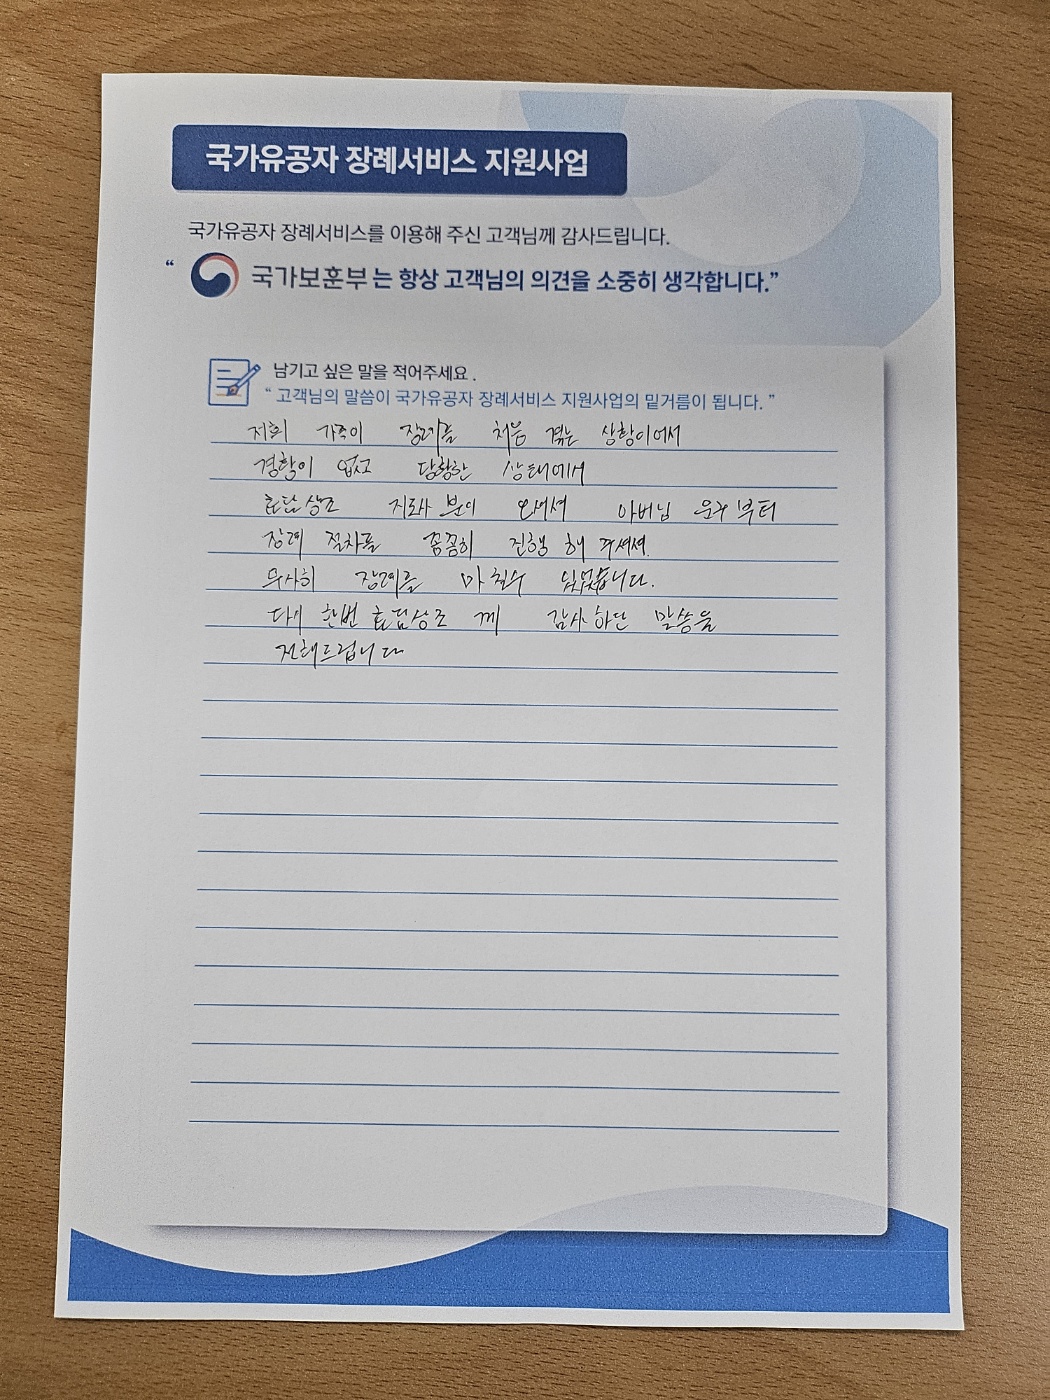 국가유공자 장례서비스 지원사업
국가유공자 장례서비스를 이용해 주신 고객님께 감사드립니다.
“ 국가보훈부 는 항상 고객님의 의견을 소중히 생각합니다.”
남기고 싶은 말을 적어주세요 .
“ 고객님의 말씀이 국가유공자 장례서비스 지원사업의 밑거름이 됩니다. ”
저희 가족이 장례를 처음 겪는 상황이어서
경험이 없고 당황한 상태에서
상조 지도사 분이 오셔셔 아버님 운구 부터
장례 절차를 꼼꼼히 진행 해 주셔셔
무사히 장례를 마칠수 있었습니다.
다시 한번 상조 께 감사 하단 말씀을
전해드립니다